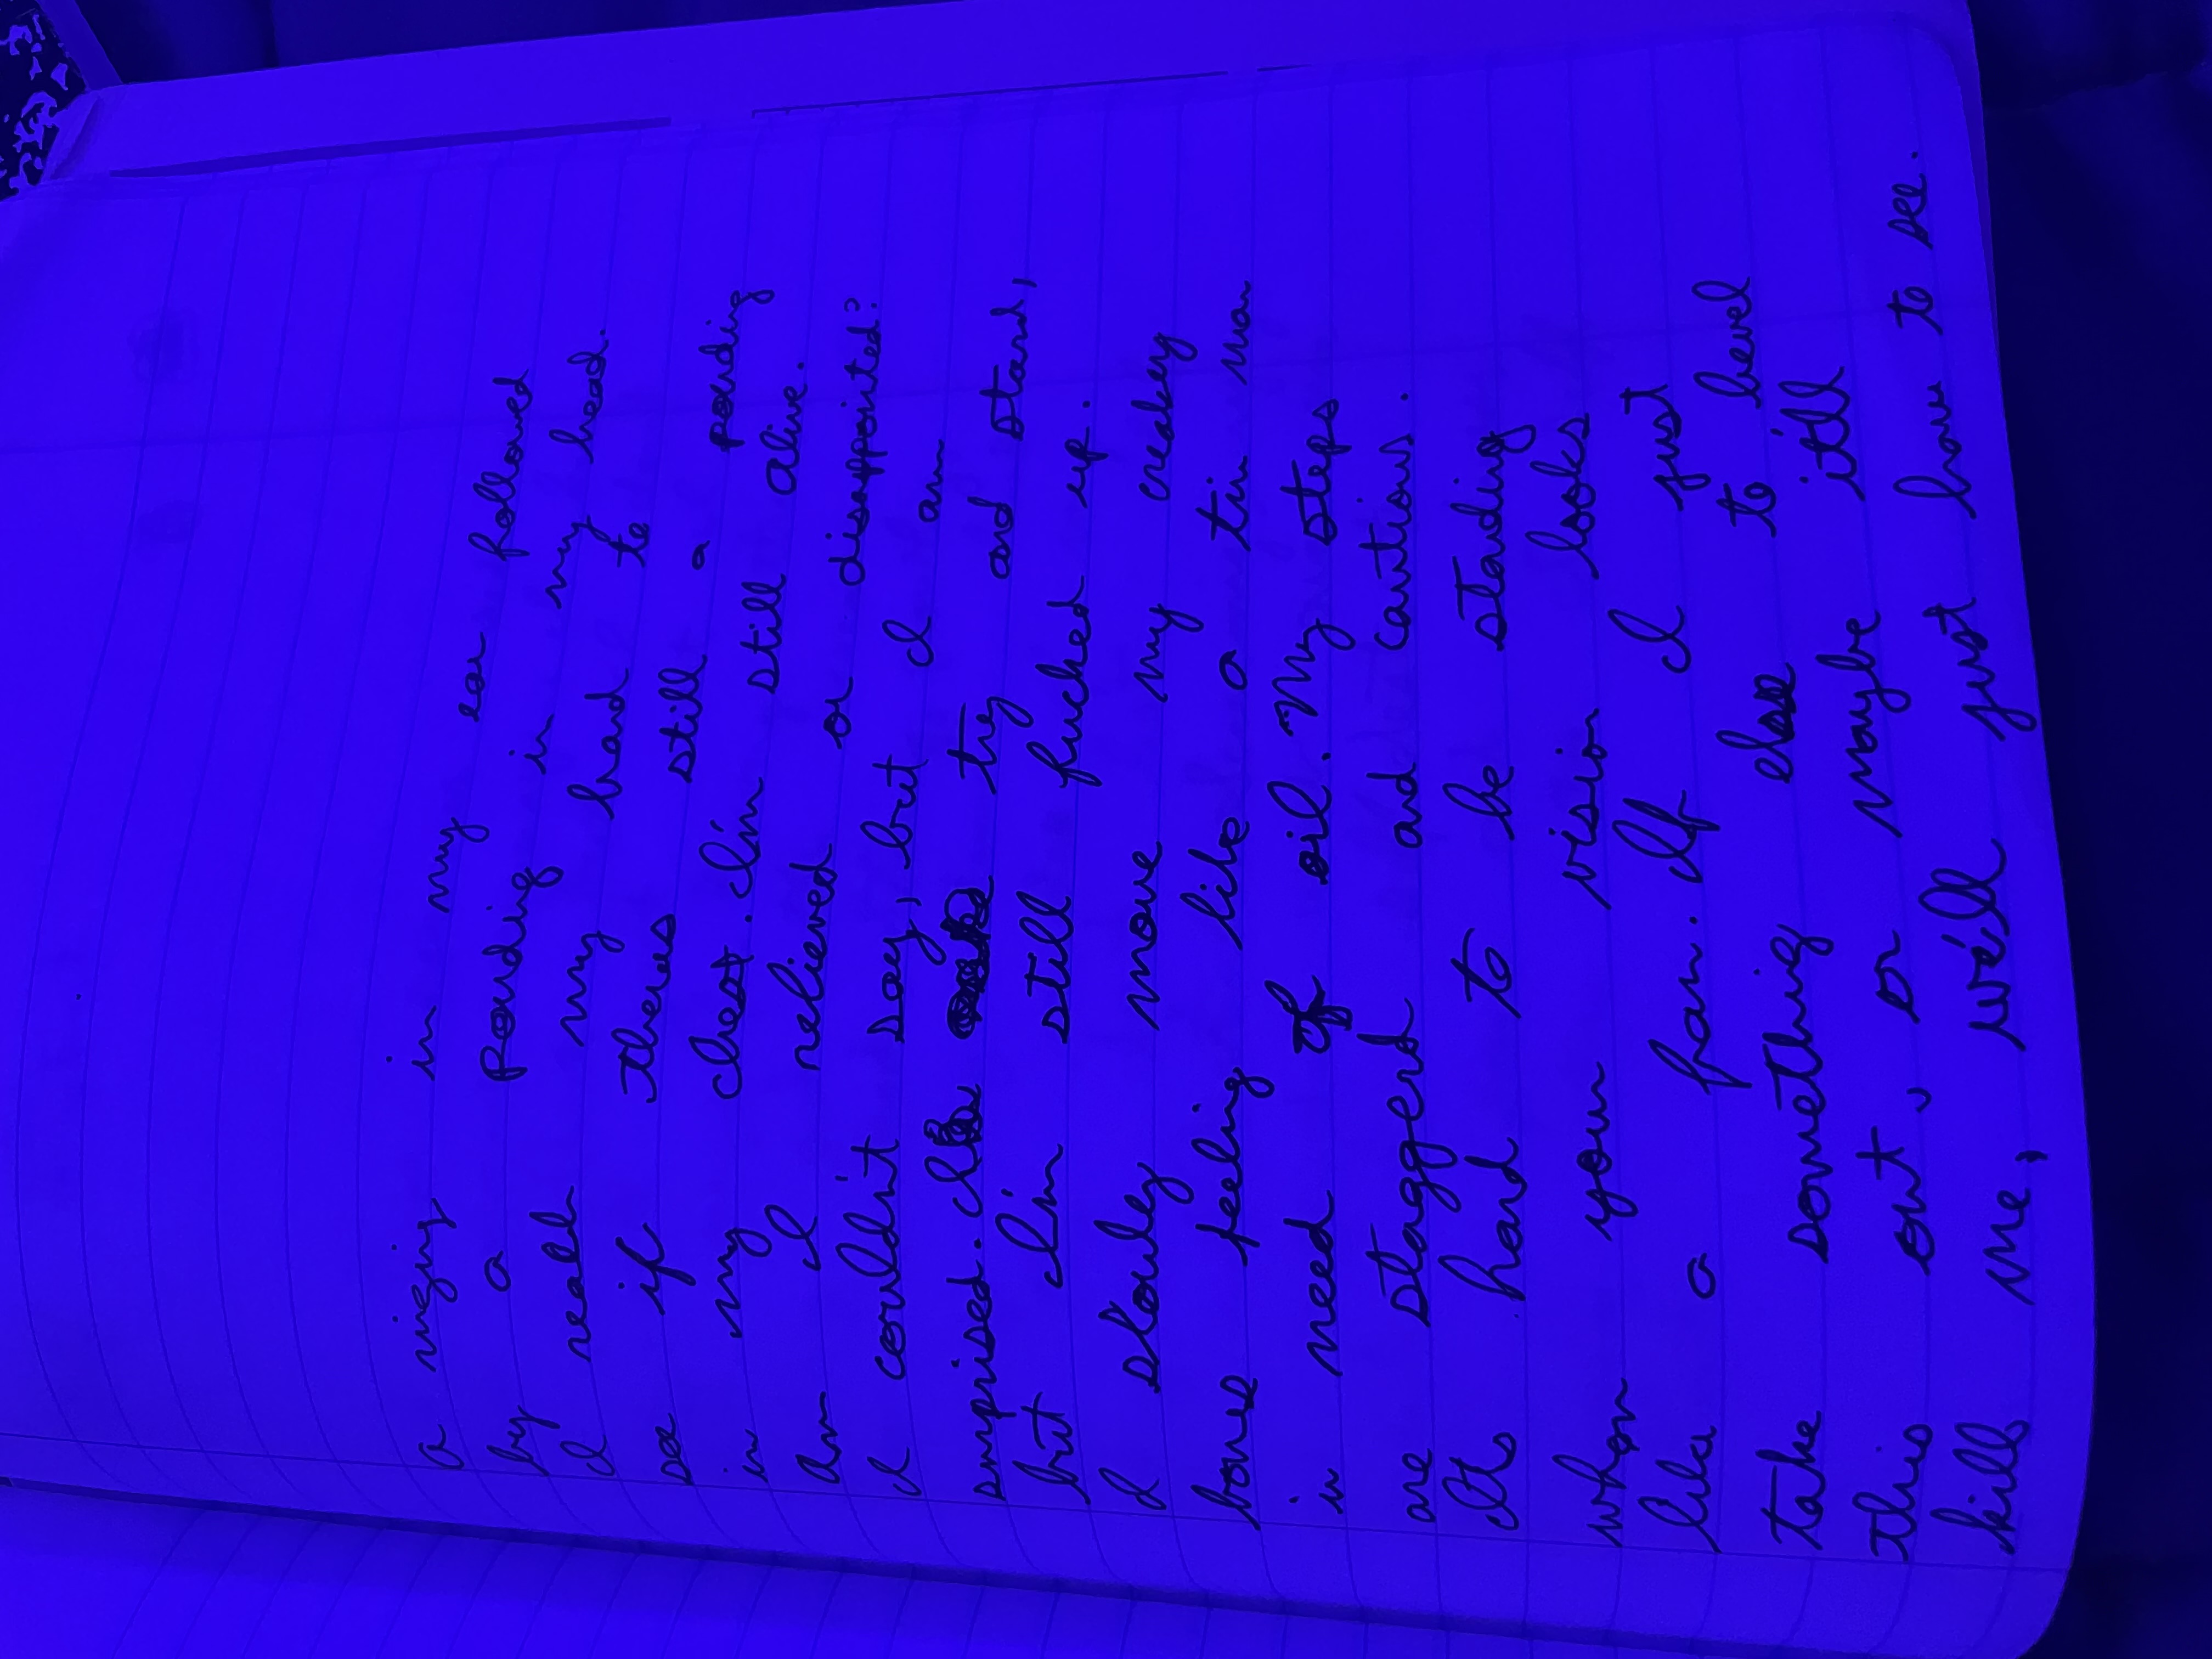 a riging in my ear followed
by a ponding in my head.
I reach my hand to
se if theres still a ponding
in my chest. I'm still alive.
Am I relieved or disappointed?
I couldn't say, but I am
surprised. I try and stand,
but I'm still fucked up.
I slowly move my creaky
bones feeling like a tin man
in need of oil. My steps
are staggerd and cautious.
Its hard to be standing
when your vision looks
like a fan. If I just
take something else to level
this out, or maybe it'll
kill me, we'll just have to see.